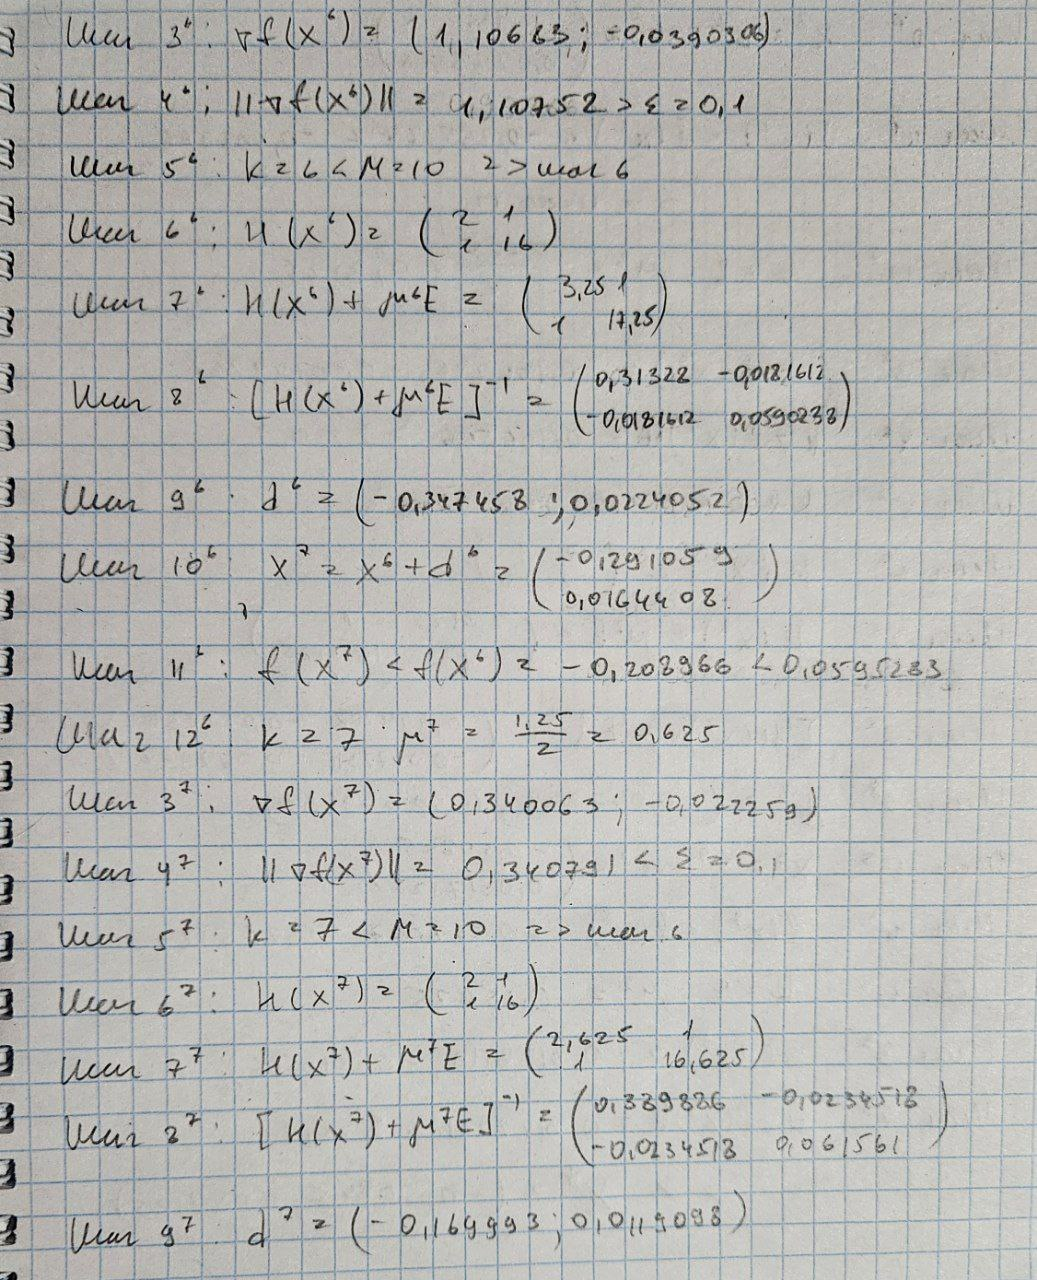 Шаг 3⁶: ∇f(x⁶) = (1,10663; -0,0390306)
Шаг 4⁶: ||∇f(x⁶)|| = 1,10752 > ε = 0,1
Шаг 5⁶: k = 6 < M = 10 => шаг 6
Шаг 6⁶: H(x⁶) = (2 1
1 16)
Шаг 7⁶: H(x⁶) + μ⁶E = (3,25 1
1 17,25)
Шаг 8⁶: [H(x⁶) + μ⁶E]⁻¹ = (0,31328 -0,0181612
-0,0181612 0,0590238)
Шаг 9⁶: d⁶ = (-0,347458; 0,0224052)
Шаг 10⁶: x⁷ = x⁶ + d⁶ = (-0,291059
0,0164408)
Шаг 11⁶: f(x⁷) < f(x⁶) = -0,208966 < 0,0595283
Шаг 12⁶: k = 7 μ⁷ = 1,25/2 = 0,625
Шаг 3⁷: ∇f(x⁷) = (0,340063; -0,022259)
Шаг 4⁷: ||∇f(x⁷)|| = 0,340791 < ε = 0,1
Шаг 5⁷: k = 7 < M = 10 => шаг 6
Шаг 6⁷: H(x⁷) = (2 1
1 16)
Шаг 7⁷: H(x⁷) + μ⁷E = (2,625 1
1 16,625)
Шаг 8⁷: [H(x⁷) + μ⁷E]⁻¹ = (0,389886 -0,0234518
-0,0234518 0,061561)
Шаг 9⁷: d⁷ = (-0,169993; 0,0119098)